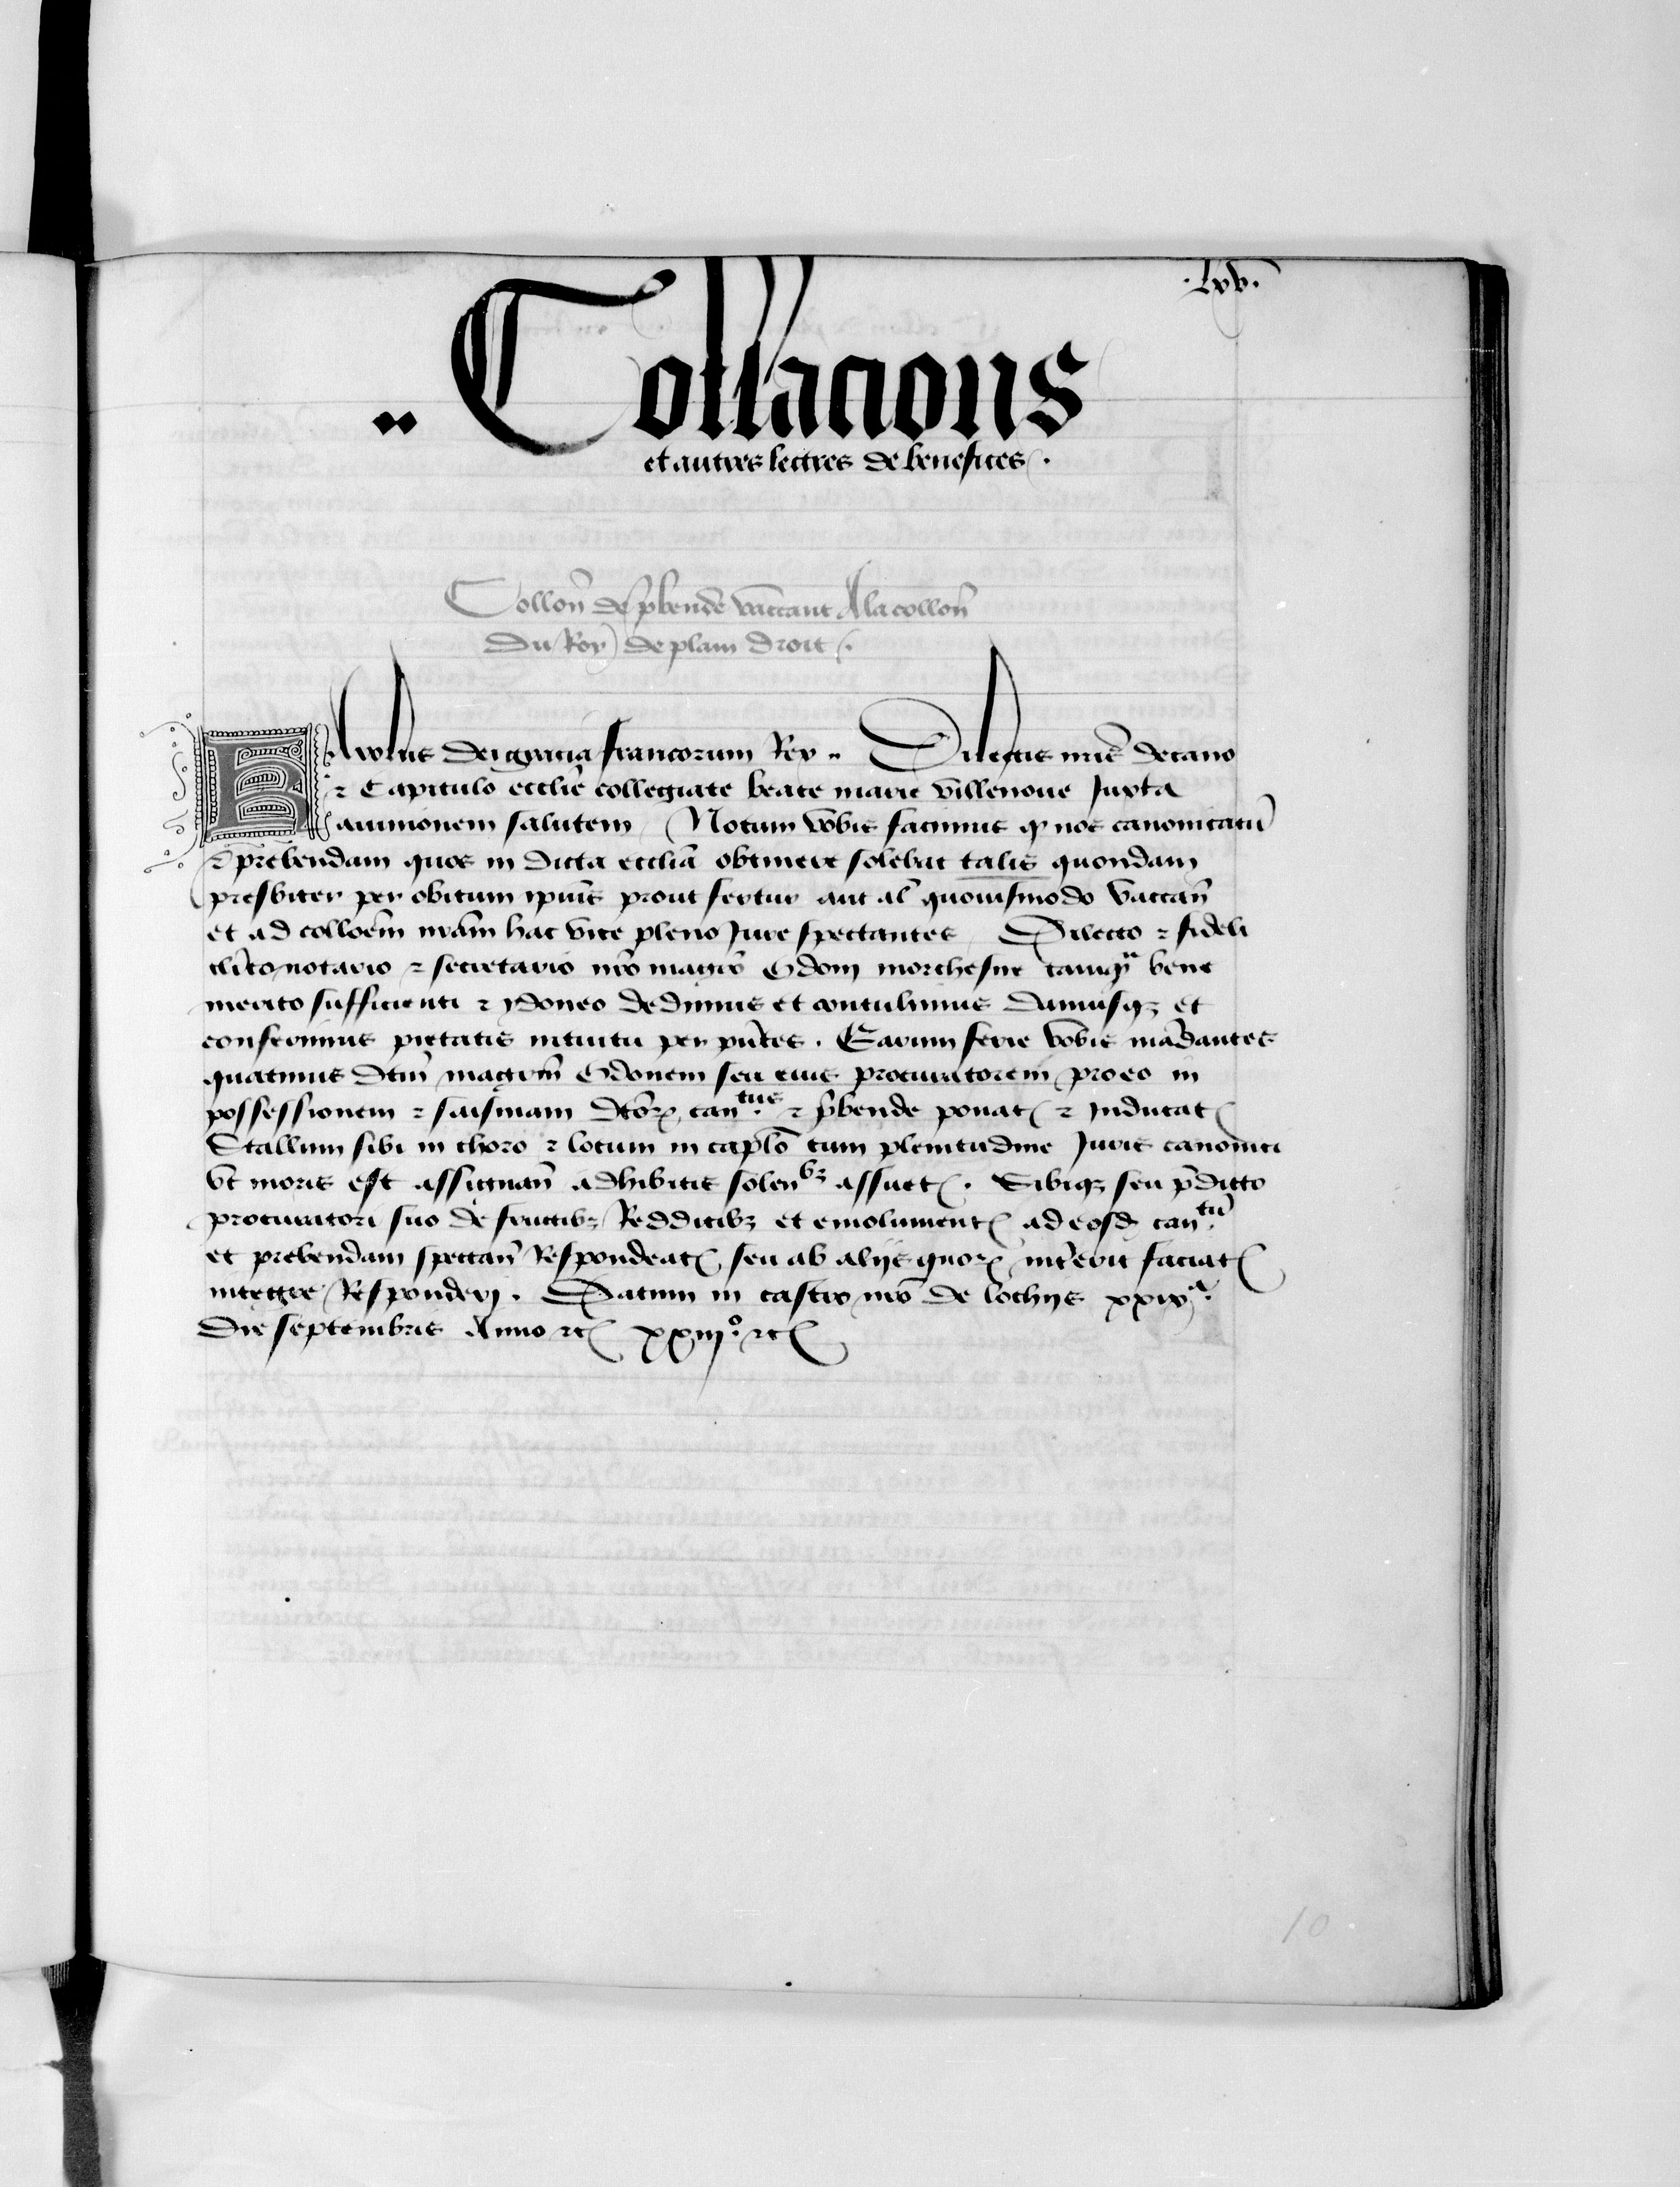 .Lxv.
Collacions
et autres lectres de benefices.
Collon̄ de p̄bende vaccant A la collon̄
Du Roy de plain droit.
KArolus dei gracia francorum Rex .. Dilectis nr̄is decano
⁊ Capitulo ecclīe collegiate beate marie villenove Juxta
avinionem salutem Notum vob̄is facimus q nos canonicatū
⁊ prebendam quos in dicta ecclīa obtinere solebat talis quondam
presbiter per obitum ip̄ius prout fertur aut al̄ quovismodo vaccan̄
et ad colloēm nr̄am hac vice pleno Jure spectantes Dilecto ⁊ fideli
cl̄ico notario ⁊ secretario nr̄o magr̄o Odoni morchesne tanqᵃ bene
merito sufficienti ⁊ ydoneo dedimus et contulimus damusqꝫ et
conferimus pietatis intuitu per pn̄tes. Earum serie vob̄is mādantes
quatinus dc̄m magr̄m Odonem seu eius procuratorem pro eo in
possessionem ⁊ saisinam dc̄orꝝ can.ᵗᵘˢ ⁊ p̄bende ponatꝭ ⁊ Inducatꝭ
Stallum sibi in choro ⁊ locum in capl̄o cum plenitudine Juris canonici
vt moris est assignan̄ adhibitis solenᵇꝫ assuetꝭ. Sibiqꝫ seu p̄dicto
procuratori suo de fructibꝫ Redditibꝫ et emolumentꝭ ad eosd can.ᵗū
et prebendam spectan̄ Respondeatꝭ seu ab alijs quorꝝ int̄erit faciatꝭ
integre Responderj. Datum in castro nr̄o de lochijs xxixᵃ.
Die septembris Anno ⁊cꝭ xxiijº. ⁊cꝭ
10